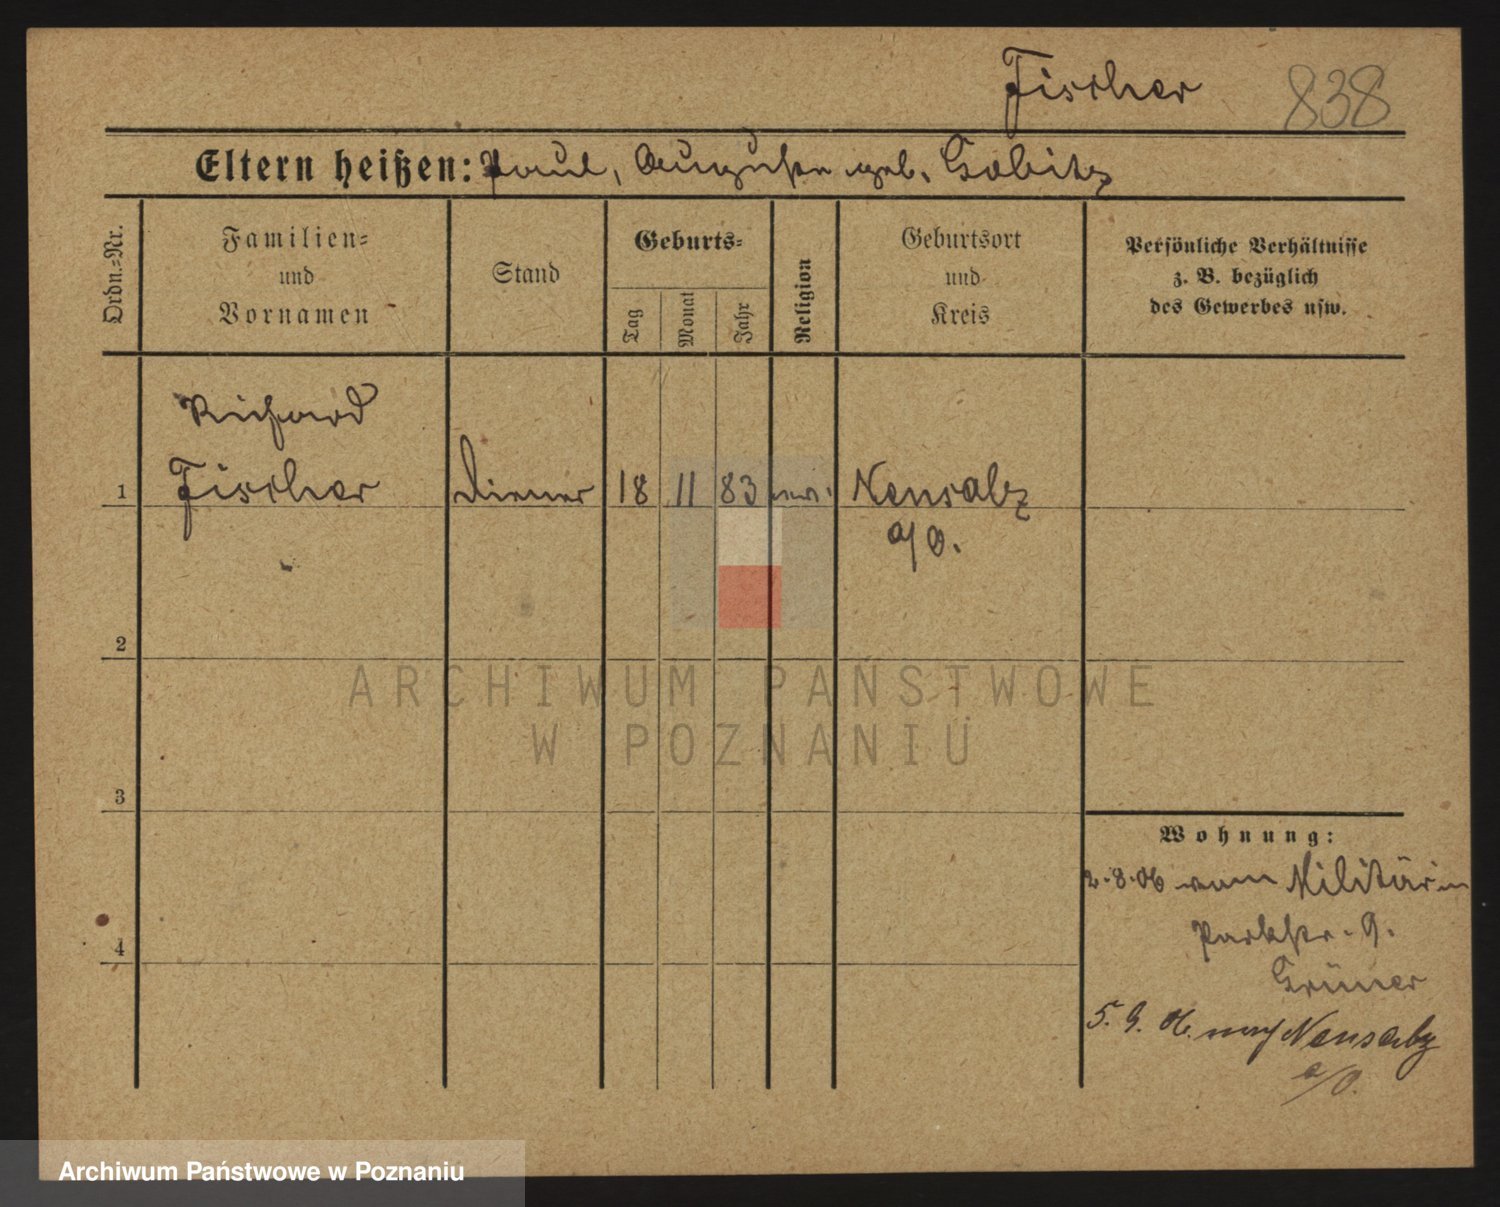 Fischer 838
Eltern heißen: Paul, Auguste geb. Gobitz
Ordn.=Nr.
Familien=
und
Vornamen
Stand
Geburts=
Tag
Monat
Jahr
Religion
Geburtsort
und
Kreis
Persönliche Verhältnisse
z. B. bezüglich
des Gewerbes usw.
Richard
1 Fischer Diener 18 11 83 Neusalz
a/O.
2
3
4
ARCHIWUM PAŃSTWOWE
W POZNANIU
Wohnung:
2.8.06 vom Militär in
Parkstr. 9.
Grüner
5. 9. 06. nach Neusalz
a/O.
Archiwum Państwowe w Poznaniu